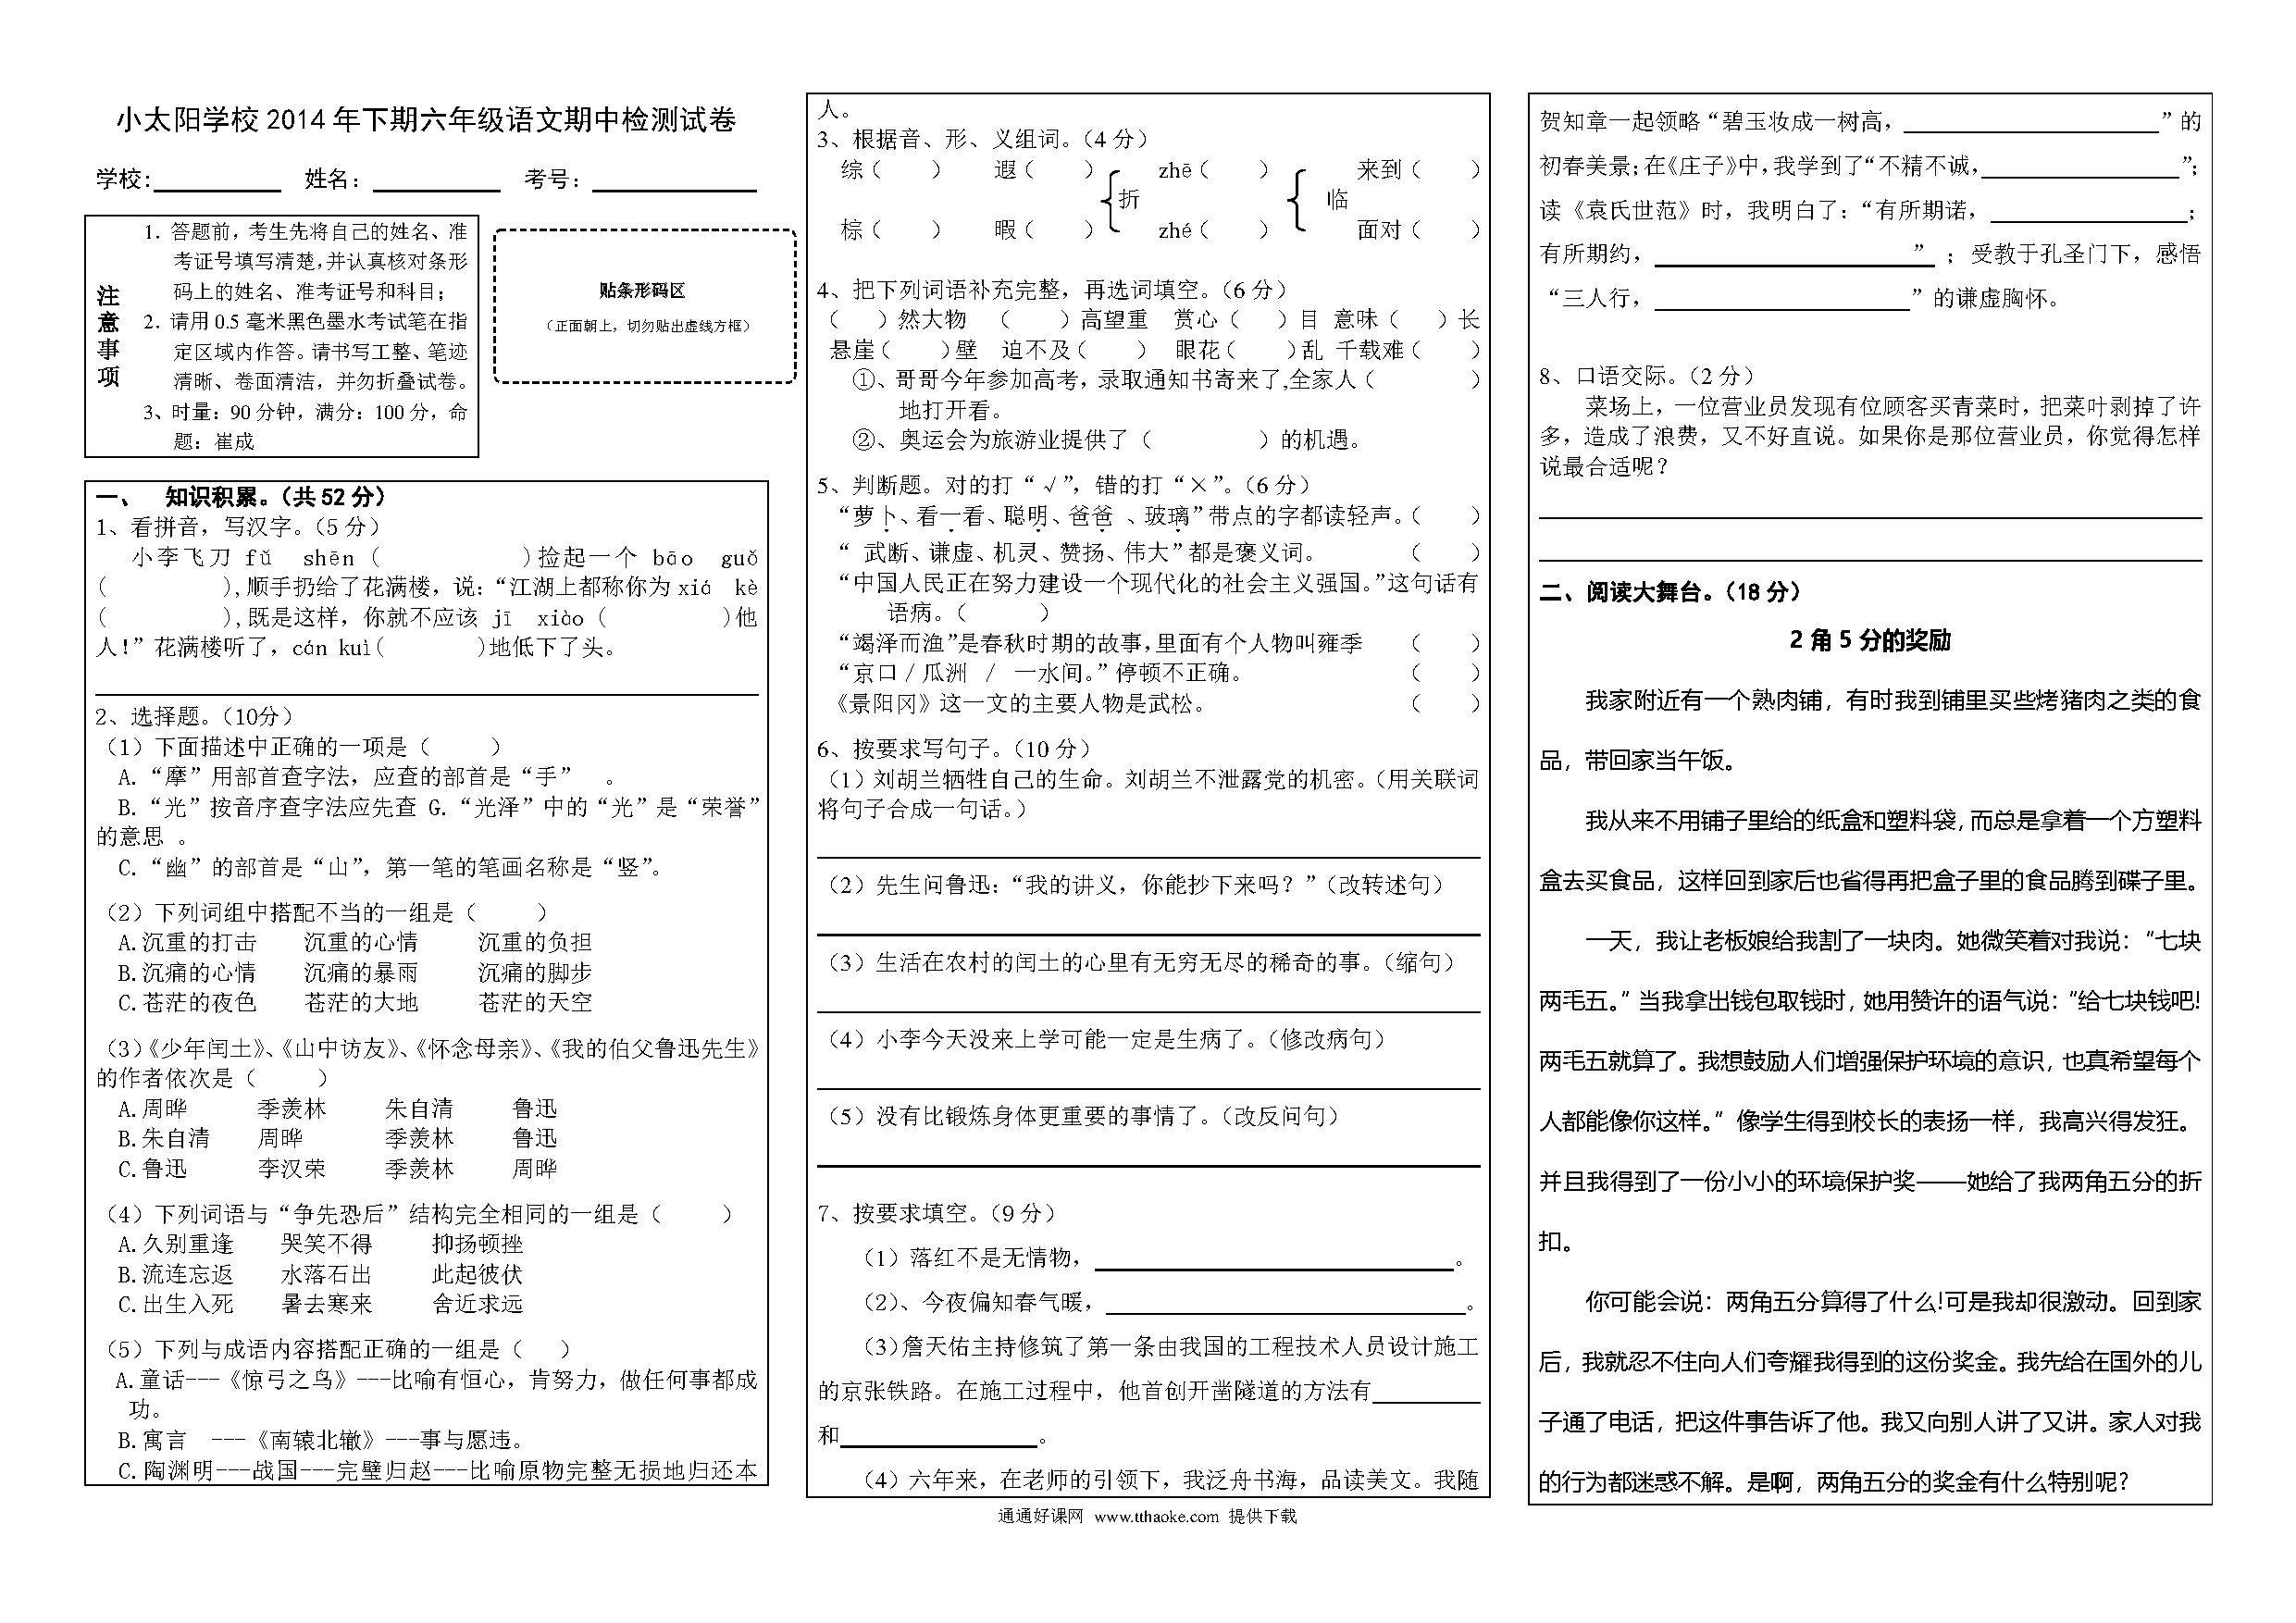 小太阳学校 2014 年下期六年级语文期中检测试卷
学校:__________ 姓名：__________ 考号：__________
注意事项
1. 答题前，考生先将自己的姓名、准
考证号填写清楚，并认真核对条形
码上的姓名、准考证号和科目；
2. 请用 0.5 毫米黑色墨水考试笔在指
定区域内作答。请书写工整、笔迹
清晰、卷面清洁，并勿折叠试卷。
3、时量：90 分钟，满分：100 分，命
题：崔成
贴条形码区
（正面朝上，切勿贴出虚线方框）
一、 知识积累。（共 52 分）
1、看拼音，写汉字。（5 分）
小李飞刀 fǔ shēn（ )捡起一个 bāo guǒ
（ )，顺手扔给了花满楼，说：“江湖上都称你为 xiá kè
（ )，既是这样，你就不应该 jī xiào（ )他
人！”花满楼听了，cán kuì( )地低下了头。
2、选择题。（10分）
（1）下面描述中正确的一项是（ ）
A.“摩”用部首查字法，应查的部首是“手” 。
B.“光”按音序查字法应先查 G.“光泽”中的“光”是“荣誉”
的意思 。
C.“幽”的部首是“山”，第一笔的笔画名称是“竖”。
（2）下列词组中搭配不当的一组是（ ）
A.沉重的打击 沉重的心情 沉重的负担
B.沉痛的心情 沉痛的暴雨 沉痛的脚步
C.苍茫的夜色 苍茫的大地 苍茫的天空
（3）《少年闰土》、《山中访友》、《怀念母亲》、《我的伯父鲁迅先生》
的作者依次是（ ）
A.周晔 季羡林 朱自清 鲁迅
B.朱自清 周晔 季羡林 鲁迅
C.鲁迅 李汉荣 季羡林 周晔
（4）下列词语与“争先恐后”结构完全相同的一组是（ ）
A.久别重逢 哭笑不得 抑扬顿挫
B.流连忘返 水落石出 此起彼伏
C.出生入死 暑去寒来 舍近求远
（5）下列与成语内容搭配正确的一组是（ ）
A.童话---《惊弓之鸟》---比喻有恒心，肯努力，做任何事都成
功。
B.寓言 ---《南辕北辙》---事与愿违。
C.陶渊明---战国---完璧归赵---比喻原物完整无损地归还本
人。
3、根据音、形、义组词。（4 分）
综（ ） 遐（ ） zhē（ ） 来到（ ）
折 临
棕（ ） 暇（ ） zhé（ ） 面对（ ）
4、把下列词语补充完整，再选词填空。（6 分）
（ ）然大物 （ ）高望重 赏心（ ）目 意味（ ）长
悬崖（ ）壁 迫不及（ ） 眼花（ ）乱 千载难（ ）
①、哥哥今年参加高考，录取通知书寄来了,全家人（ ）
地打开看。
②、奥运会为旅游业提供了（ ）的机遇。
5、判断题。对的打“√”，错的打“×”。（6 分）
“萝卜、看一看、聪明、爸爸 、玻璃”带点的字都读轻声。（ ）
“ 武断、谦虚、机灵、赞扬、伟大”都是褒义词。 （ ）
“中国人民正在努力建设一个现代化的社会主义强国。”这句话有
语病。（ ）
“竭泽而渔”是春秋时期的故事，里面有个人物叫雍季 （ ）
“京口 / 瓜洲 / 一水间。”停顿不正确。 （ ）
《景阳冈》这一文的主要人物是武松。 （ ）
6、按要求写句子。（10 分）
（1）刘胡兰牺牲自己的生命。刘胡兰不泄露党的机密。（用关联词
将句子合成一句话。）
（2）先生问鲁迅：“我的讲义，你能抄下来吗？”（改转述句）
（3）生活在农村的闰土的心里有无穷无尽的稀奇的事。（缩句）
（4）小李今天没来上学可能一定是生病了。（修改病句）
（5）没有比锻炼身体更重要的事情了。（改反问句）
7、按要求填空。（9 分）
（1）落红不是无情物，__________。
（2）、今夜偏知春气暖，__________。
（3）詹天佑主持修筑了第一条由我国的工程技术人员设计施工
的京张铁路。在施工过程中，他首创开凿隧道的方法有__________
和__________。
（4）六年来，在老师的引领下，我泛舟书海，品读美文。我随
贺知章一起领略“碧玉妆成一树高，__________”的
初春美景；在《庄子》中，我学到了“不精不诚，__________”；
读《袁氏世范》时，我明白了：“有所期诺，__________；
有所期约，__________” ；受教于孔圣门下，感悟
“三人行，__________”的谦虚胸怀。
8、口语交际。（2 分）
菜场上，一位营业员发现有位顾客买青菜时，把菜叶剥掉了许
多，造成了浪费，又不好直说。如果你是那位营业员，你觉得怎样
说最合适呢？
二、阅读大舞台。（18 分）
2 角 5 分的奖励
我家附近有一个熟肉铺，有时我到铺里买些烤猪肉之类的食
品，带回家当午饭。
我从来不用铺子里给的纸盒和塑料袋，而总是拿着一个方塑料
盒去买食品，这样回到家后也省得再把盒子里的食品腾到碟子里。
一天，我让老板娘给我割了一块肉。她微笑着对我说：“七块
两毛五。”当我拿出钱包取钱时，她用赞许的语气说：“给七块钱吧!
两毛五就算了。我想鼓励人们增强保护环境的意识，也真希望每个
人都能像你这样。”像学生得到校长的表扬一样，我高兴得发狂。
并且我得到了一份小小的环境保护奖——她给了我两角五分的折
扣。
你可能会说：两角五分算得了什么!可是我却很激动。回到家
后，我就忍不住向人们夸耀我得到的这份奖金。我先给在国外的儿
子通了电话，把这件事告诉了他。我又向别人讲了又讲。家人对我
的行为都迷惑不解。是啊，两角五分的奖金有什么特别呢？
通通好课网 www.tthaoke.com 提供下载